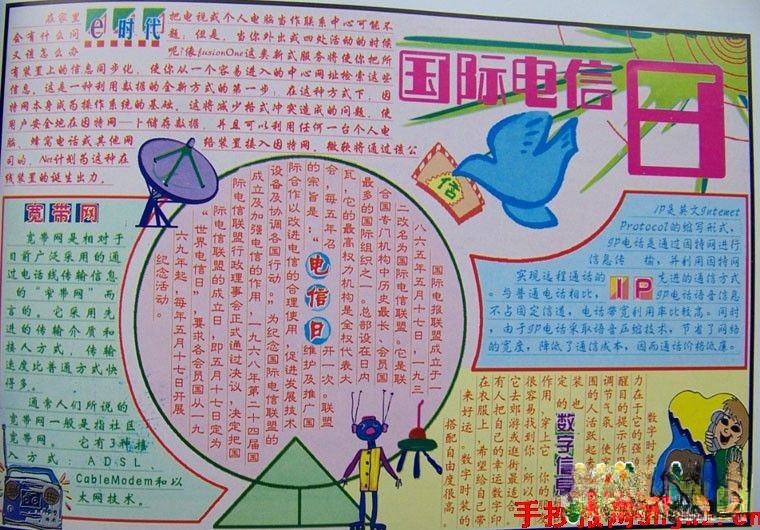 国际电信日
e时代
在家里把电视或个人电脑当作联系中心可能不
会有什么问题;但是,当你外出或四处活动的时候
又该怎么办呢?像fusionOne这类新式服务将使你把所
有装置上的信息同步化,使你从一个容易进入的中心网址检索这些
信息。这是一种利用数据的全新方式的第一步;在这种方式下,因
特网本身成为操作系统的基础。这将减少格式冲突造成的问题,使
用户安全地在因特网上储存数据,并且可以利用任何一台个人电
脑、蜂窝电话或其他网络装置接入因特网。微软将通过该公
司的.Net计划为这种在
线装置的诞生出力。
宽带网
宽带网是相对于
目前广泛采用的通
过电话线传输信息
的“窄带网”而
言的。它采用先
进的传输介质和
接入方式,传输
速度比普通方式快
得多。
通常人们所说的
宽带网一般是指社区
宽带网,它有3种接
入方式:ADSL、
CableModem和以
太网技术。
电信日
国际电报联盟成立于一
八六五年五月十七日,一九三
二改名为国际电信联盟。它是联
合国专门机构中历史最长、会员国
最多的国际组织之一。总部设在日内
瓦,它的最高权力机构是全权代表大
会,每五年召开一次。联盟
的宗旨是:“维护及推广国
际合作以改进电信的合理使用,促进发展技术
设备及协调各国行动。”为纪念国际电信联盟的
成立及加强电信的作用,一九六八年第二十四届国
际电信联盟行政理事会正式通过决议,决定把国
际电信联盟的成立日,即五月十七日定为
“世界电信日”,要求各会员国从一九
六九年起,每年五月十七日开展
纪念活动。
信
IP
IP是英文Internet
Protocol的缩写形式,
IP电话是通过因特网进行
信息传输,并利用因特网
实现远程通话的先进的通信方式。
与普通电话相比,IP电话语音信息
不占固定信道,电话带宽利用率比较高。同时,
由于IP电话采取语音压缩技术,节省了网络
的宽度,降低了通信成本,因而通话价格低廉。
数字信息
数字时装
力在于它的强
醒目的提示作
调节气氛,使
围的人活跃起
装也
定的
作用,穿上它,你的
很容易找到你,所以
它去郊游或逛街最适
有人把自己的幸运数字印
在衣服上,希望给自己带
来好运。数字时装的
搭配自由度很高。